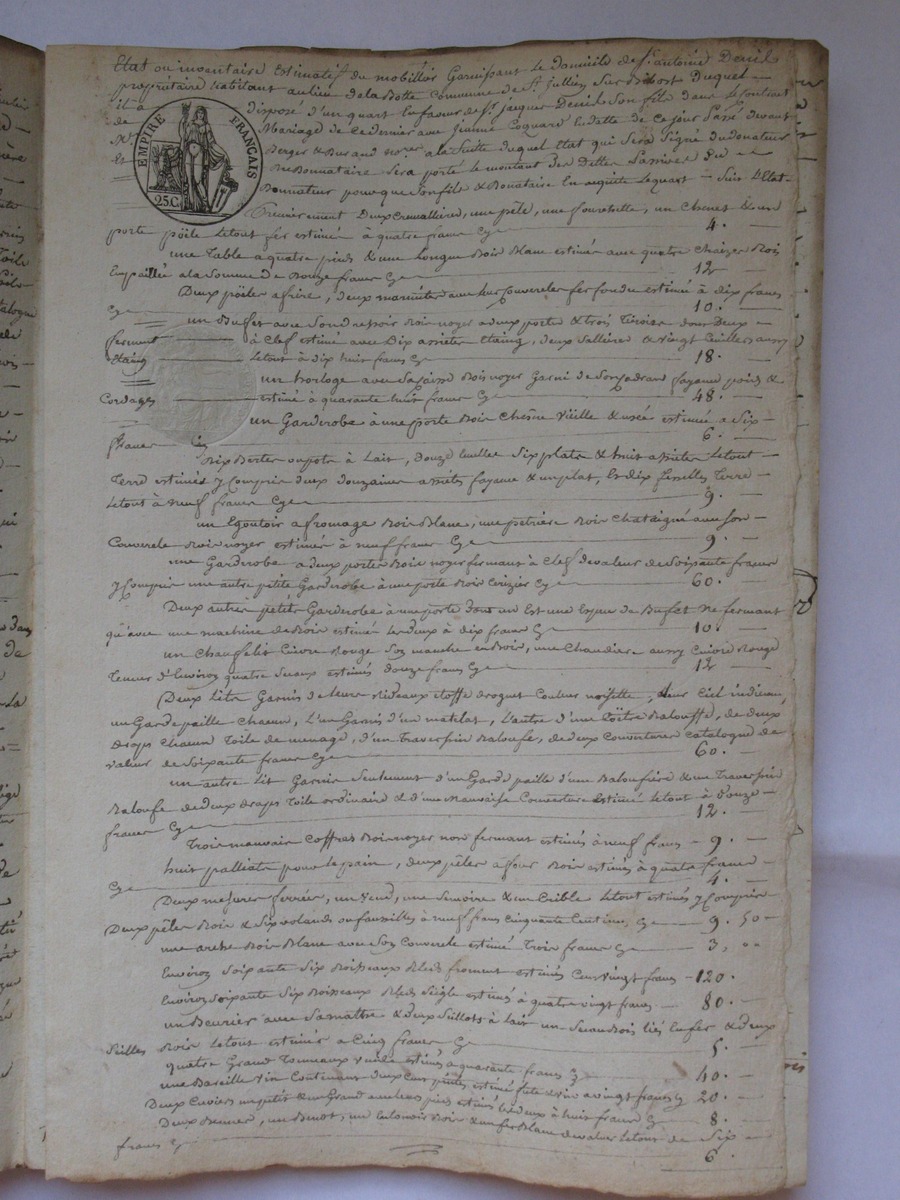 Etat ou inventaire Estimatif du mobillier Garnissant le Domicile de Sr. antoine Deuil
proprietaire habitant aulieu de la Botte Commune de St. Jullien Sur Bibost Duquel —
il a disposé d'un quart En faveur de Sr. jacques Deuil Son fils dans le Contrat
de Mariage de ce dernier avec jeanne Coquard En datte de ce jour passé devant
Me. Berger & Durand notres. a la Suitte duquel Etat qui Sera Signé du donateur
& le Donnataire Sera porté le montant des Dettes passives du
Donnateur pour que Son fils & Donataire En aquitte le quart — Suit l'Etat —
EMPIRE FRANÇAIS
25 C
Premierement Deux Cremallieres, une pêle, une fourchette, un Chenet & un
porte pöile Le tout fer estimés à quatre francs Cy 4.
une Table a quatre pieds & une Longue Bois Blanc estimé avec quatre Chaizes Bois
Empaillé a la Somme de Douze francs Cy 12
Deux pöeles a frire, deux marmites avec leur Couvercles fer fondu estimé à dix francs
Cy 10.
un Buffet avec Son dressoir Bois noyer a deux portes & trois Tiroirs dont Deux —
ferment à Clef estimé avec Dix assiettes Etaing, deux Sallieres & vingt Cuillers aussy
Etaing Le tout à dix huit francs Cy 18.
un horloge avec Sa Caisse Bois noyer Garni de Son Cadrant fayance poids &
Cordages estimé à quarante huit francs Cy 48.
un Garderobe à une porte Bois Chesne Vieille & usée estimée a Six —
francs Cy 6.
Dix Bertes ou pots à Lait, douze Ecuelles Six plats & huit assiettes Le tout —
Terre estimés y Compris deux douzaines assiettes fayance & un plat, & dix fisselles Terre —
Le tout à neuf francs Cy 9.
un Egoutoir a fromage Bois Blanc, une petriere Bois Chataigné avec Son —
Couvercle Bois noyer estimés à neuf francs Cy 9.
une Garderobe a deux portes Bois noyer fermant à Clef de valeur de Soixante francs
y Compris une autre petite Garderobe à une porte Bois Cerizier Cy 60.
Deux autres petits Garderobe à une porte dont un Est une Espece de Bufet ne fermant
qu'avec une machine de Bois estimé Les deux à dix francs Cy 10.
un Chauffelit Cuivre Rouge Son manche en Bois, une Chaudiere aussy Cuivre Rouge
Teneur d'Environ quatre Sceaux estimés douze francs Cy 12
Deux Lits Garnis de leurs Rideaux étoffe droguet Couleur noisette, leur Ciel indienne
un Garde paille Chacun, L'un Garnis d'un matelat, L'autre d'une Balouffe, de deux
draps Chacun Toile de menage, d'un Traversin Baloufe, de deux Couvertures Catalogne de
valeur de Soixante francs Cy 60.
un autre Lit Garnis Seulement d'un Garde paille d'une Baloufiere & une Traversin
Baloufe de deux draps Toile ordinaire & d'une Mauvaise Couverture estimé Le tout à Douze —
francs Cy 12.
Trois mauvais Coffres Bois noyer non fermant estimés à neuf francs — 9.
huit palliats pour le pain, deux pêles a four Bois estimés à quatre francs —
Cy 4.
Deux mesures ferrées, un Vend, une Semoire & un Crible Le tout estimés y Compris
Deux pêles Bois & Six volands ou fausilles à neuf francs Cinquante Centimes Cy 9. 50
une arche Bois Blanc avec Son Couvercle estimé Trois francs Cy 3, 00
Environ Soixante Six Boisseaux Bleds froment estimés Cent vingt francs — 120.
Environ Soixante Six Boisseaux Bleds Seigle estimés à quatre vingt francs — 80.
un Beurier avec Sa & deux Seillots à Lait un Seau Bois liés En fer & deux
Seilles Bois Le tout estimés a Cinq francs Cy 5.
quatre Grand Tonneaux vuide estimés a quarante francs Cy 40.
une Bareille vin Contenant deux Cent pintes estimé fute & vin a vingt francs Cy 20.
Deux Cuviers un petit & un Grand estimés Les deux à huit francs Cy 8.
Deux Bennes, un Benot, un Bois & un fer Blanc de valeur Le tout de Six —
francs Cy 6.